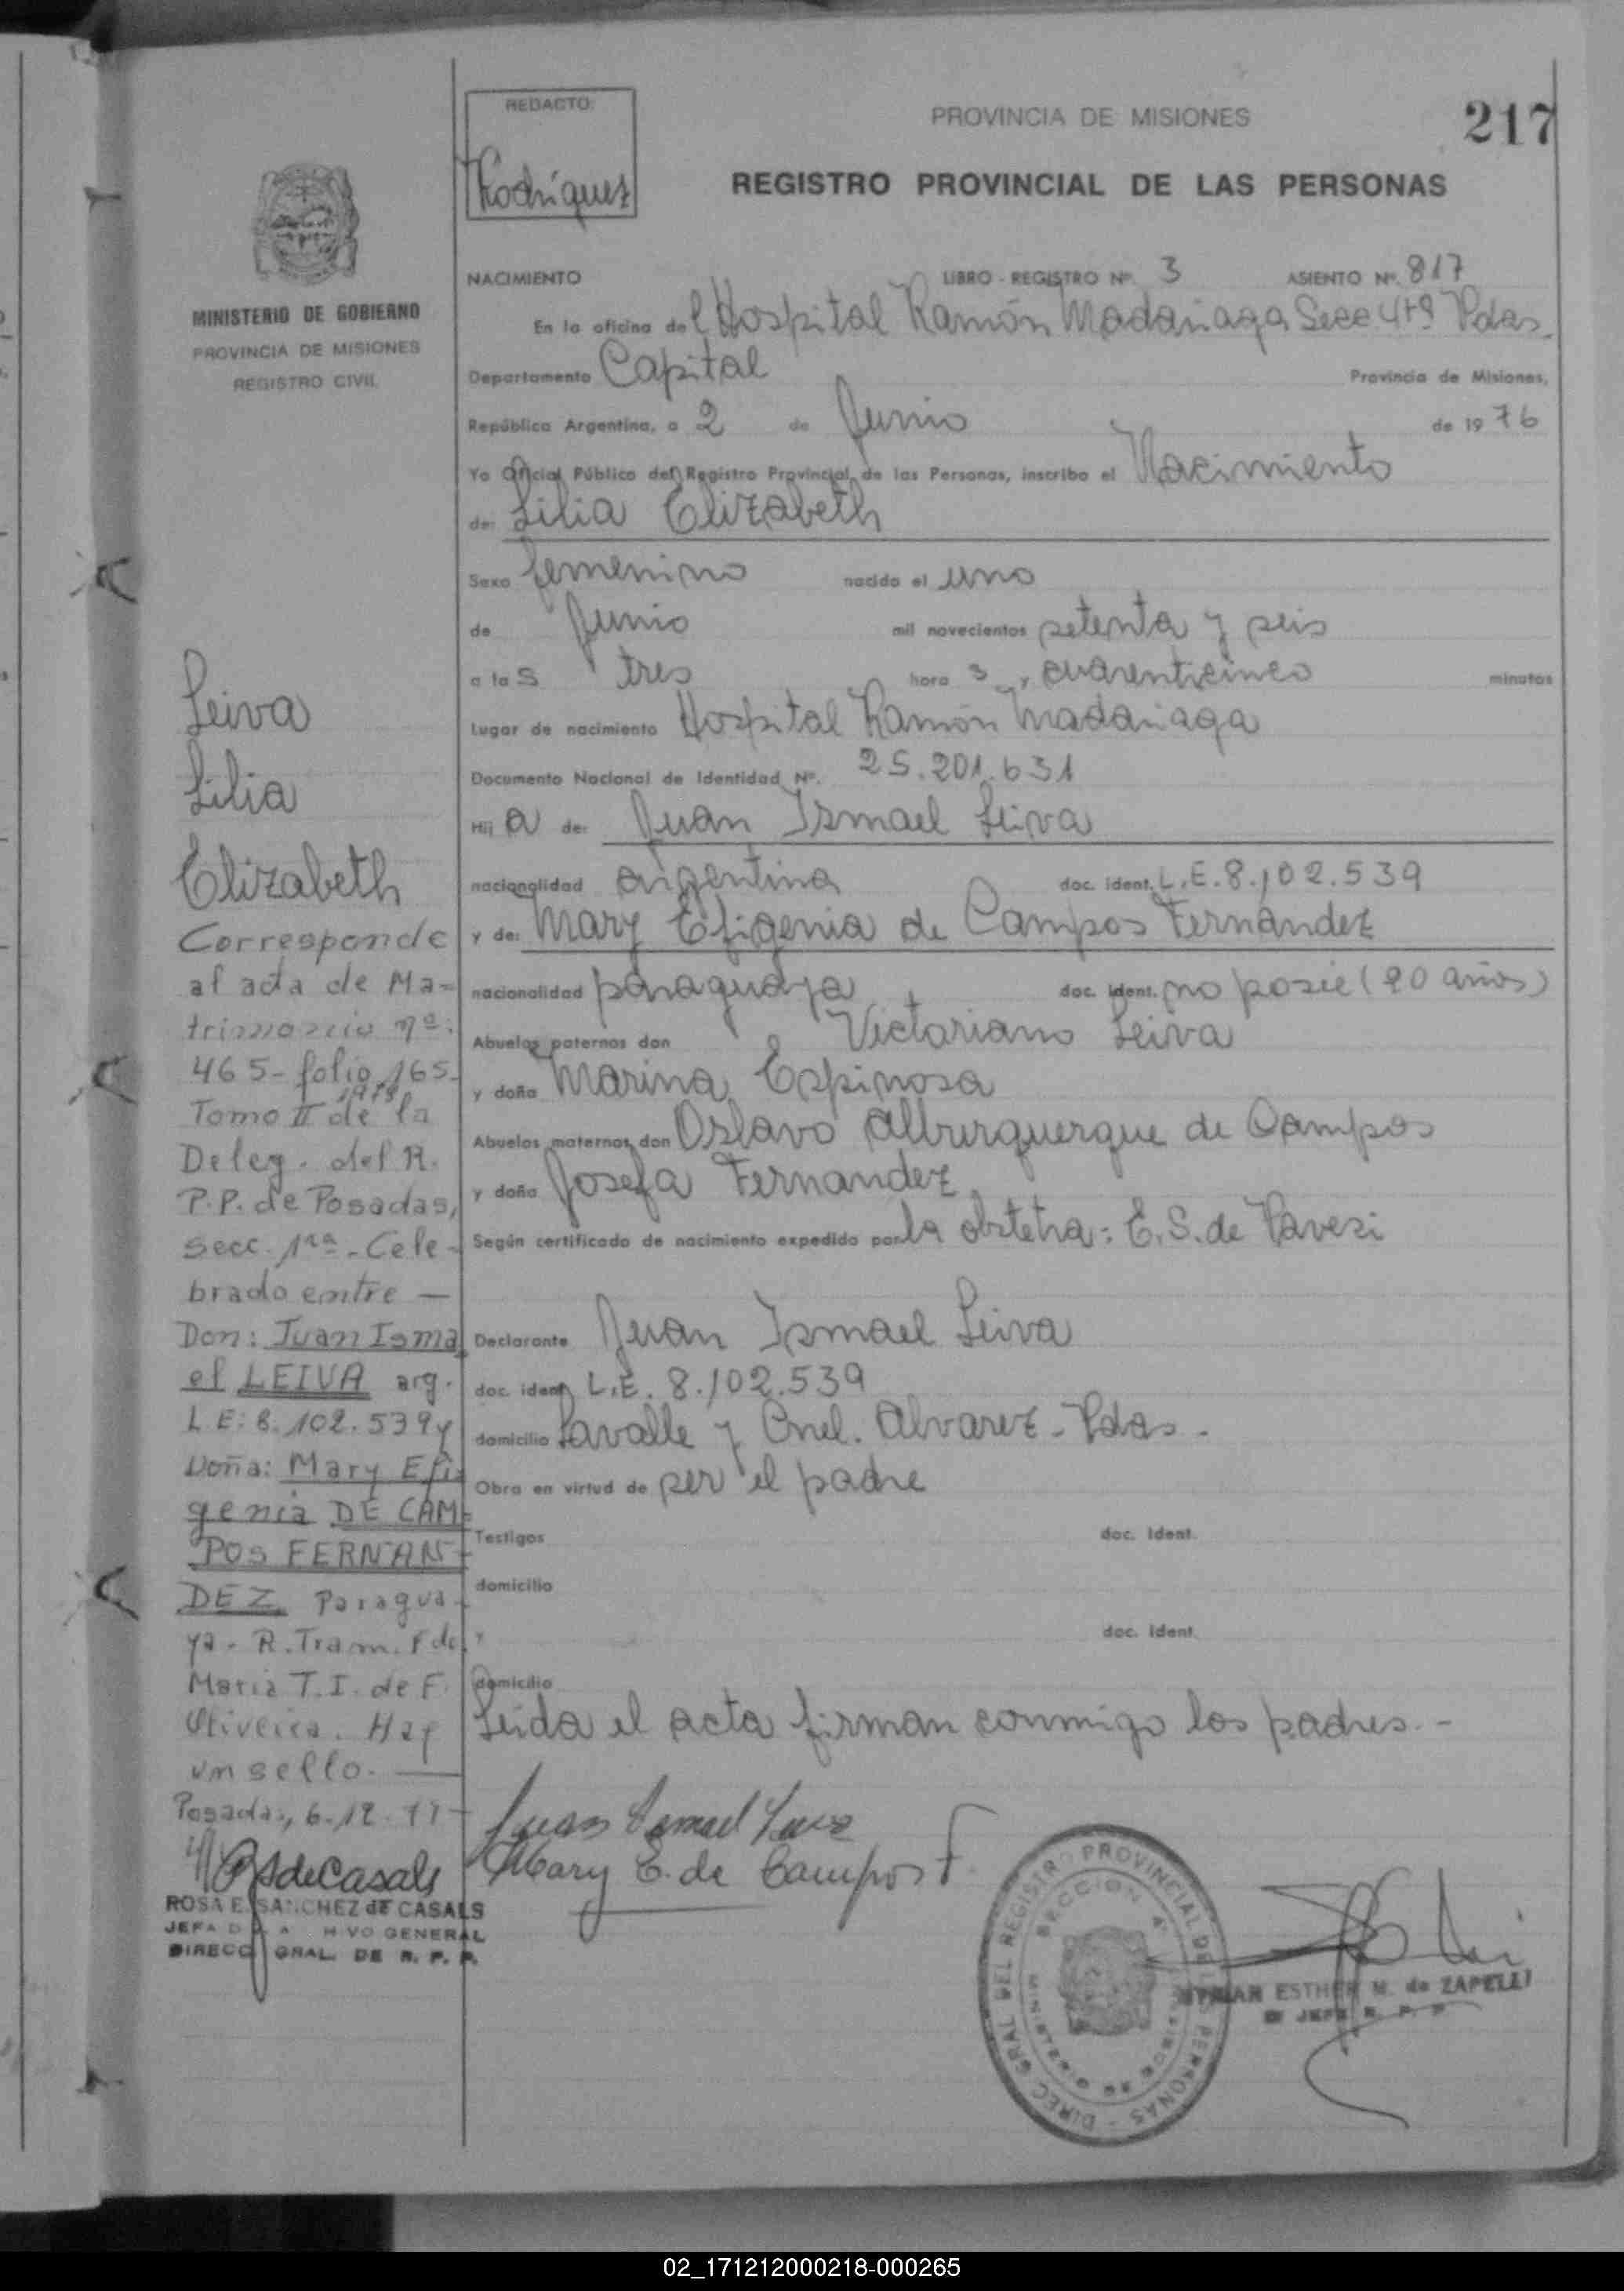 REDACTO:
Rodríguez
PROVINCIA DE MISIONES
217
REGISTRO PROVINCIAL DE LAS PERSONAS
MINISTERIO DE GOBIERNO
PROVINCIA DE MISIONES
REGISTRO CIVIL
NACIMIENTO LIBRO - REGISTRO Nº. 3 ASIENTO Nº. 817
En la oficina del Hospital Ramón Madariaga Secc 4ta Pdas.
Departamento Capital Provincia de Misiones,
República Argentina, a 2 de Junio de 1976
Yo Oficial Público del Registro Provincial de las Personas, inscribo el Nacimiento
de: Lilia Elizabeth
Sexo femenino nacido el uno
de Junio mil novecientos setenta y seis
a las tres hora 3 y cuarenticinco minutos
Lugar de nacimiento Hospital Ramón Madariaga
Documento Nacional de Identidad Nº. 25.201.631
Hija de: Juan Ismael Leiva
nacionalidad argentina doc. ident. L.E. 8.102.539
y de: Mary Efigenia de Campos Fernandez
nacionalidad paraguaya doc. ident. no posee (20 años)
Abuelos paternos don Victoriano Leiva
y doña Marina Espinosa
Abuelos maternos don Oslavo Alburquerque de Campos
y doña Josefa Fernandez
Según certificado de nacimiento expedido por la obstetra: E. S. de Pavesi
Declarante Juan Ismael Leiva
doc. ident. L.E. 8.102.539
domicilio Lavalle y Cnel. Alvarez - Pdas -
Obra en virtud de ser el padre
Testigos doc. ident.
domicilio
doc. ident.
domicilio
Leida el acta firman conmigo los padres. -
Juan Ismael Leiva
Mary E. de Campos F.
Leiva
Lilia
Elizabeth
Corresponde
al acta de Ma-
trimonio nº:
465 - folio 165 -
1979
Tomo II de la
Deleg. del R.
P.P. de Posadas,
Secc. 1ra - Cele-
brado entre —
Don: Juan Isma
el LEIVA arg.
L.E: 8.102.539 y
Doña: Mary Efi
genia DE CAM-
POS FERNAN-
DEZ Paragua-
ya - R. Tram. Fdo.
Maria T. I. de F.
Oliveira. Hay
un sello. —
Posadas, 6-12-
RSdeCasals
ROSA E. SANCHEZ de CASALS
JEFA DEL ARCHIVO GENERAL
DIRECC. GRAL. DE R. P. P.
DIREC. GRAL DEL REGISTRO PROVINCIAL DE LAS PERSONAS
SECCION 4ª
MYRIAN ESTHER M. de ZAPELLI
JEFE R. P. P.
02_171212000218-000265